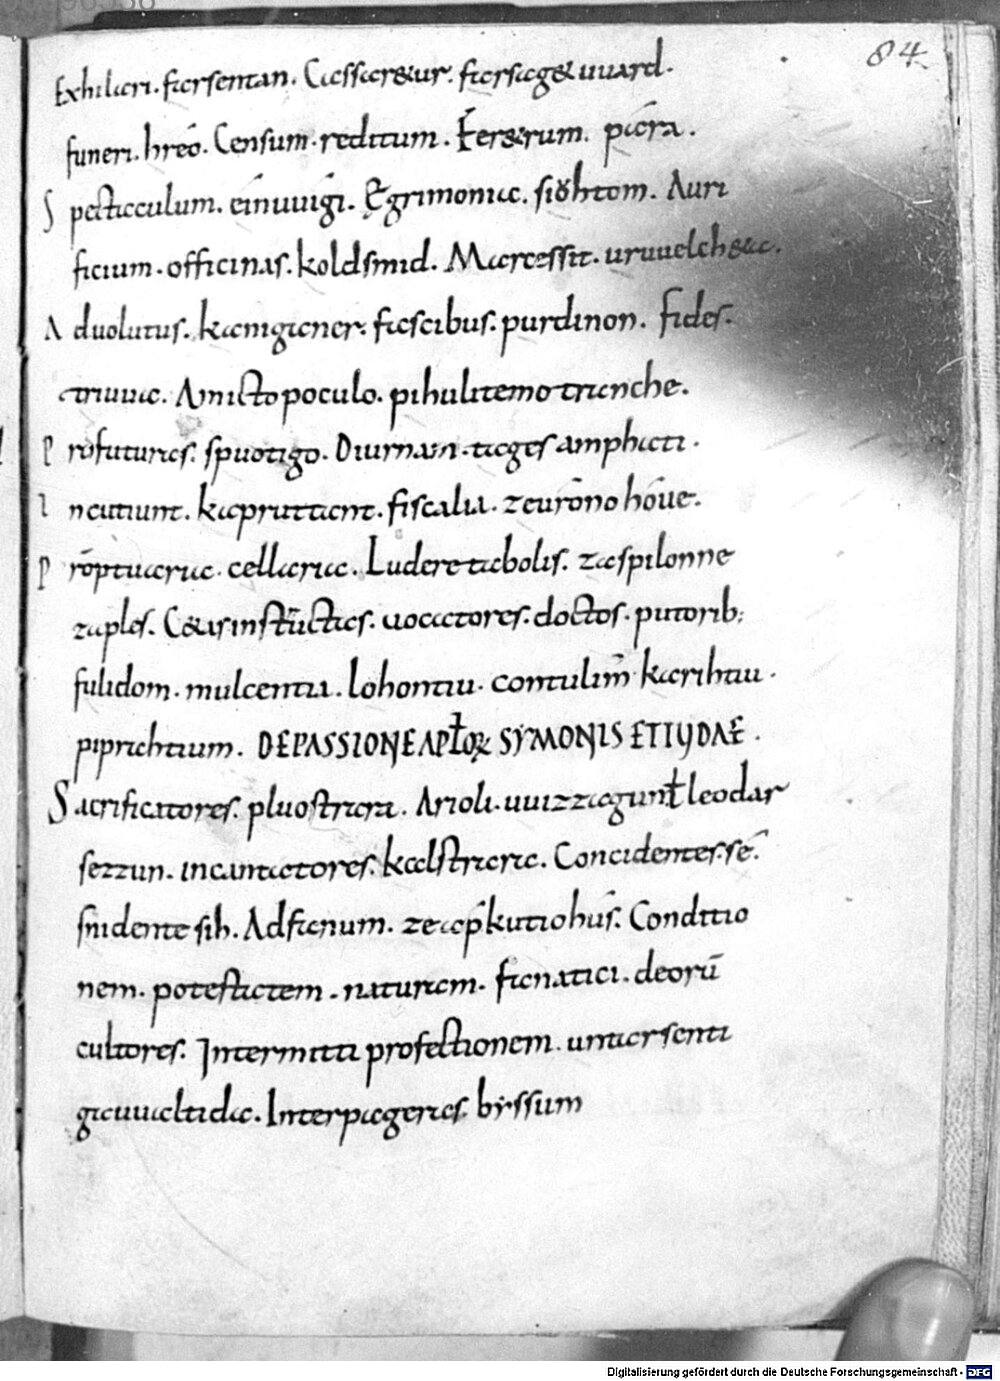 84
Exhilari. farsentan. Cassaretur. farsaget uuard.
funeri. hreo. Censum. reditum. Feretrum. para.
Spectaculum. einuuigi. Egrimonia. sidhtom. Auri
ficium. officinas. koldsmid. Marcessit. uruuelcheta.
Aduolutus. kaanganer. fascibus. purdinon. fides.
triuua. Amicto poculo. pihulitemo tranche.
Profuturas. spuotigo. Diurnam. tages amphati.
Incutiunt. kapruttant. fiscalia. zeuronohoue.
Proptuaria. cellaria. Ludere tabolis. zaspilonne
zaples. Cetas instructas. uocatores. doctos. putorib;
fulidom. mulcentia. lohontiu. contulim̄ karihtiu.
piprahtium. DE PASSIONE APŁOꝜ SYMONIS ET IUDAE.
Sacrificatores. pluostrara. Arioli. uuizzagunł leodar
sezzun. incantatores. kaalstrara. Concidentes. sē.
snidente sih. Ad fanum. zeapkutio hus. Conditio
nem. potestatem. naturam. fanatici. deorū
cultores. Intermitti profectionem. untarsenti
gauueltida. Interpageras byssum
Digitalisierung gefördert durch die Deutsche Forschungsgemeinschaft - DFG